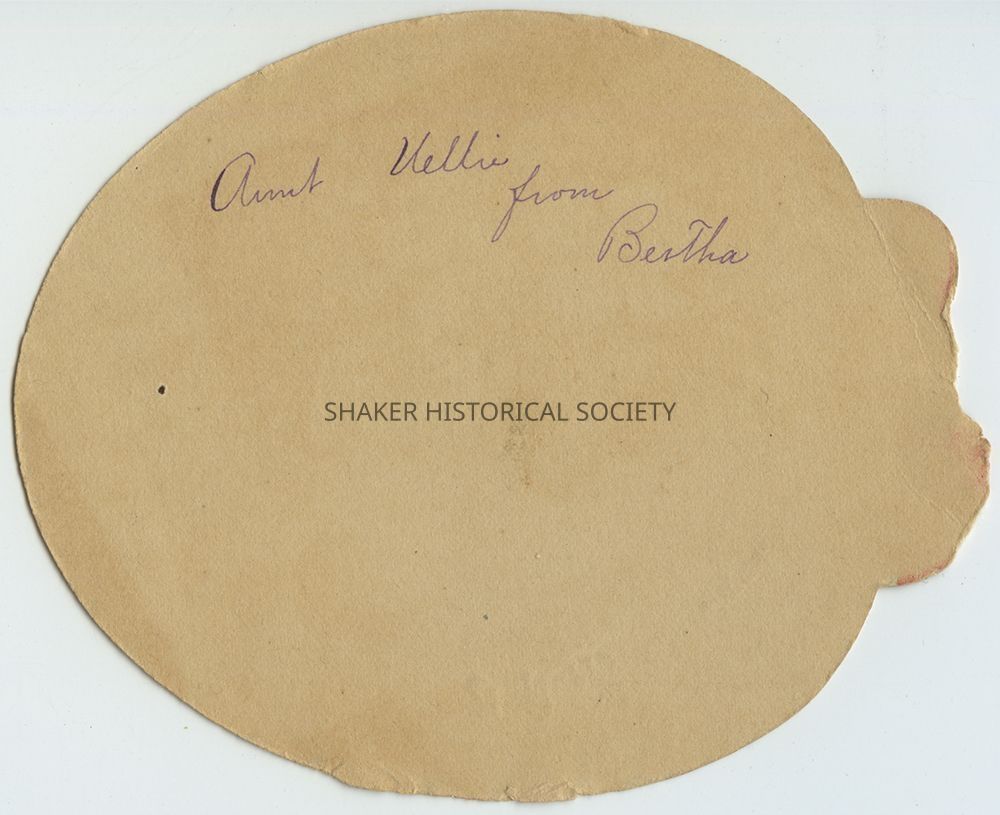 Aunt Nellie
from
Bertha
SHAKER HISTORICAL SOCIETY